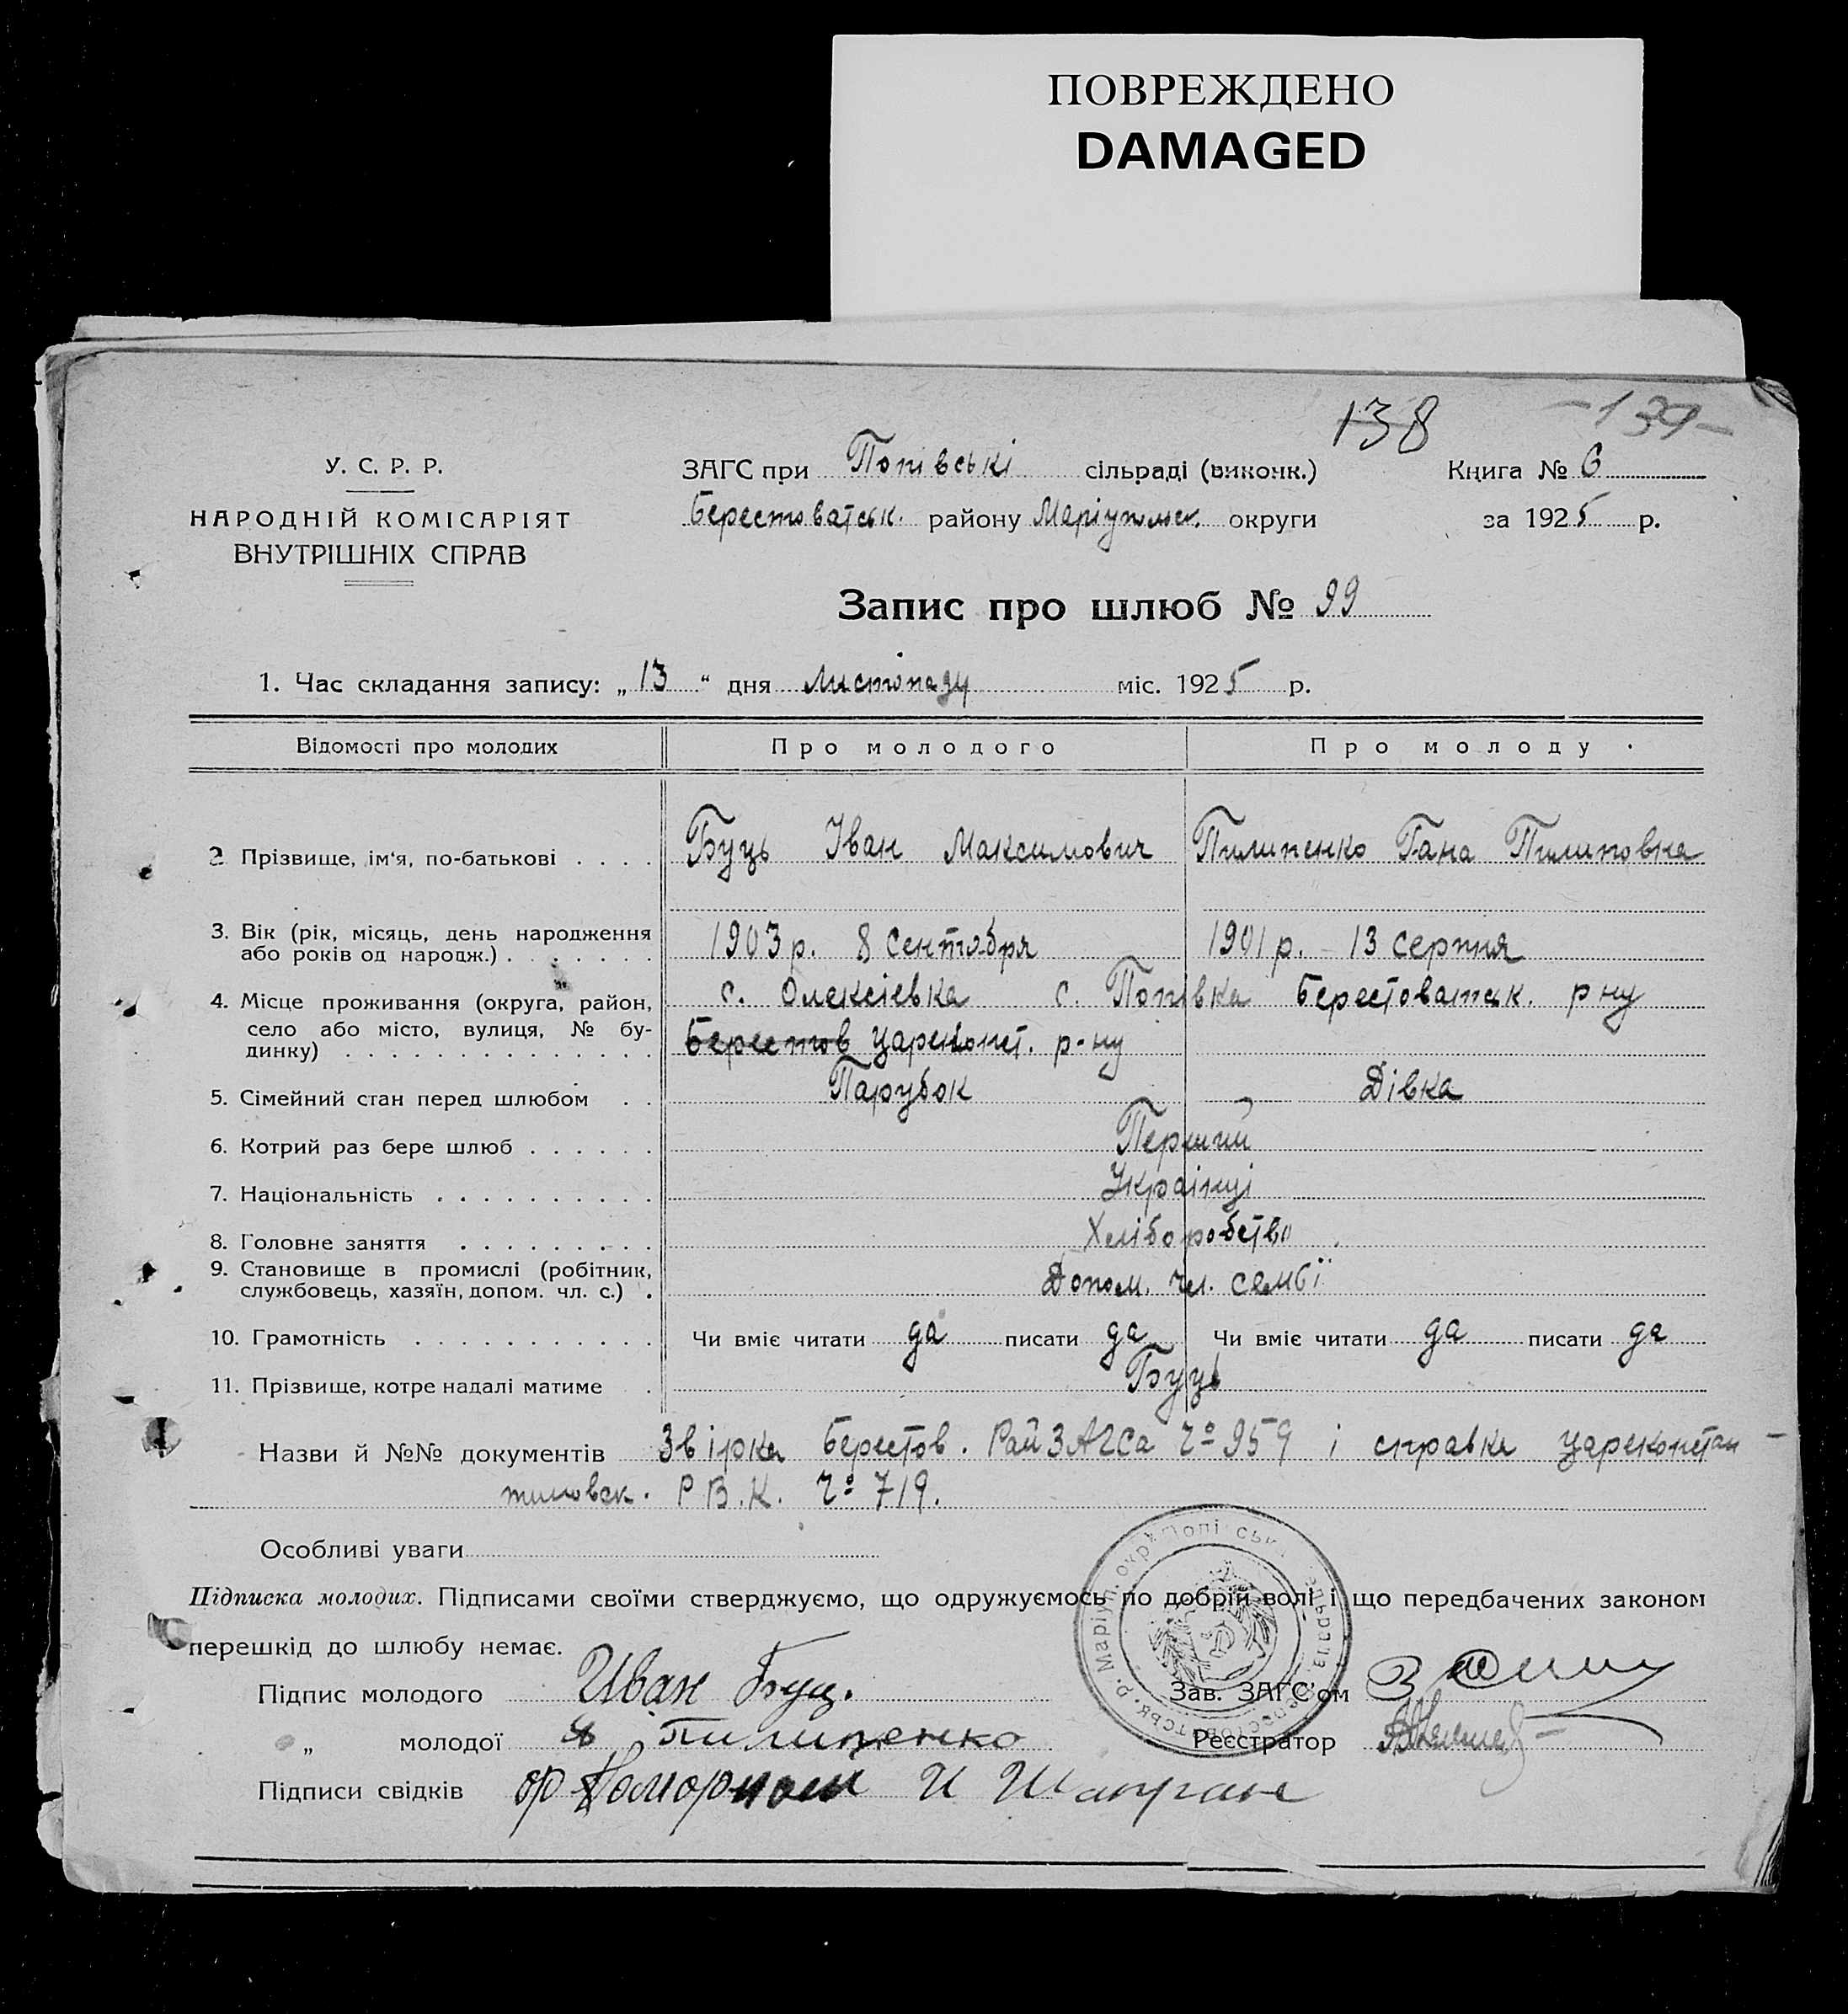 ПОВРЕЖДЕНО
DAMAGED
138 -139-
У. С. Р. Р.
НАРОДНІЙ КОМІСАРІЯТ
ВНУТРІШНІХ СПРАВ
ЗАГС при Попівські сільраді (виконк.)
Берестоватськ. району Маріупольс. округи
Книга № 6
за 1925 р.
Запис про шлюб № 99
1. Час складання запису: „13“ дня листопаду міс. 1925 р.
Відомості про молодих Про молодого Про молоду
2. Прізвище, ім'я, по-батькові . . . . Буць Іван Максимович Пилипенко Гана Пилиповна
3. Вік (рік, місяць, день народження
або років од народж.) . . . . . . . 1903 р. 8 сентября 1901 р. - 13 серпня
4. Місце проживання (округа, район, с. Олексієвка с. Попівка Берестоватськ. р ну
село або місто, вулиця, № бу-
динку) . . . . . . . . . . . . . . Берестов Цареконст. р-ну
5. Сімейний стан перед шлюбом . . Парубок Дівка
6. Котрий раз бере шлюб . . . . . . Перший
7. Національність . . . . . . . . . . Українці
8. Головне заняття . . . . . . . . . Хліборобство
9. Становище в промислі (робітник,
службовець, хазяїн, допом. чл. с.) . Допом. чл. сембї
10. Грамотність . . . . . . . . . . . Чи вміє читати да писати да Чи вміє читати да писати да
11. Прізвище, котре надалі матиме . Буць
Назви й №№ документів Звірка Берестов. РайЗАГСа № 959 і справка Цареконстан-
тиновск. Р.В.К. № 719.
Особливі уваги
Підписка молодих. Підписами своїми стверджуємо, що одружуємось по добрій волі і що передбачених законом
перешкід до шлюбу немає.
Підпис молодого Иван Буц. Зав. ЗАГС'ом
„ молодої Пилипенко Реєстратор
Підписи свідків И Шапран